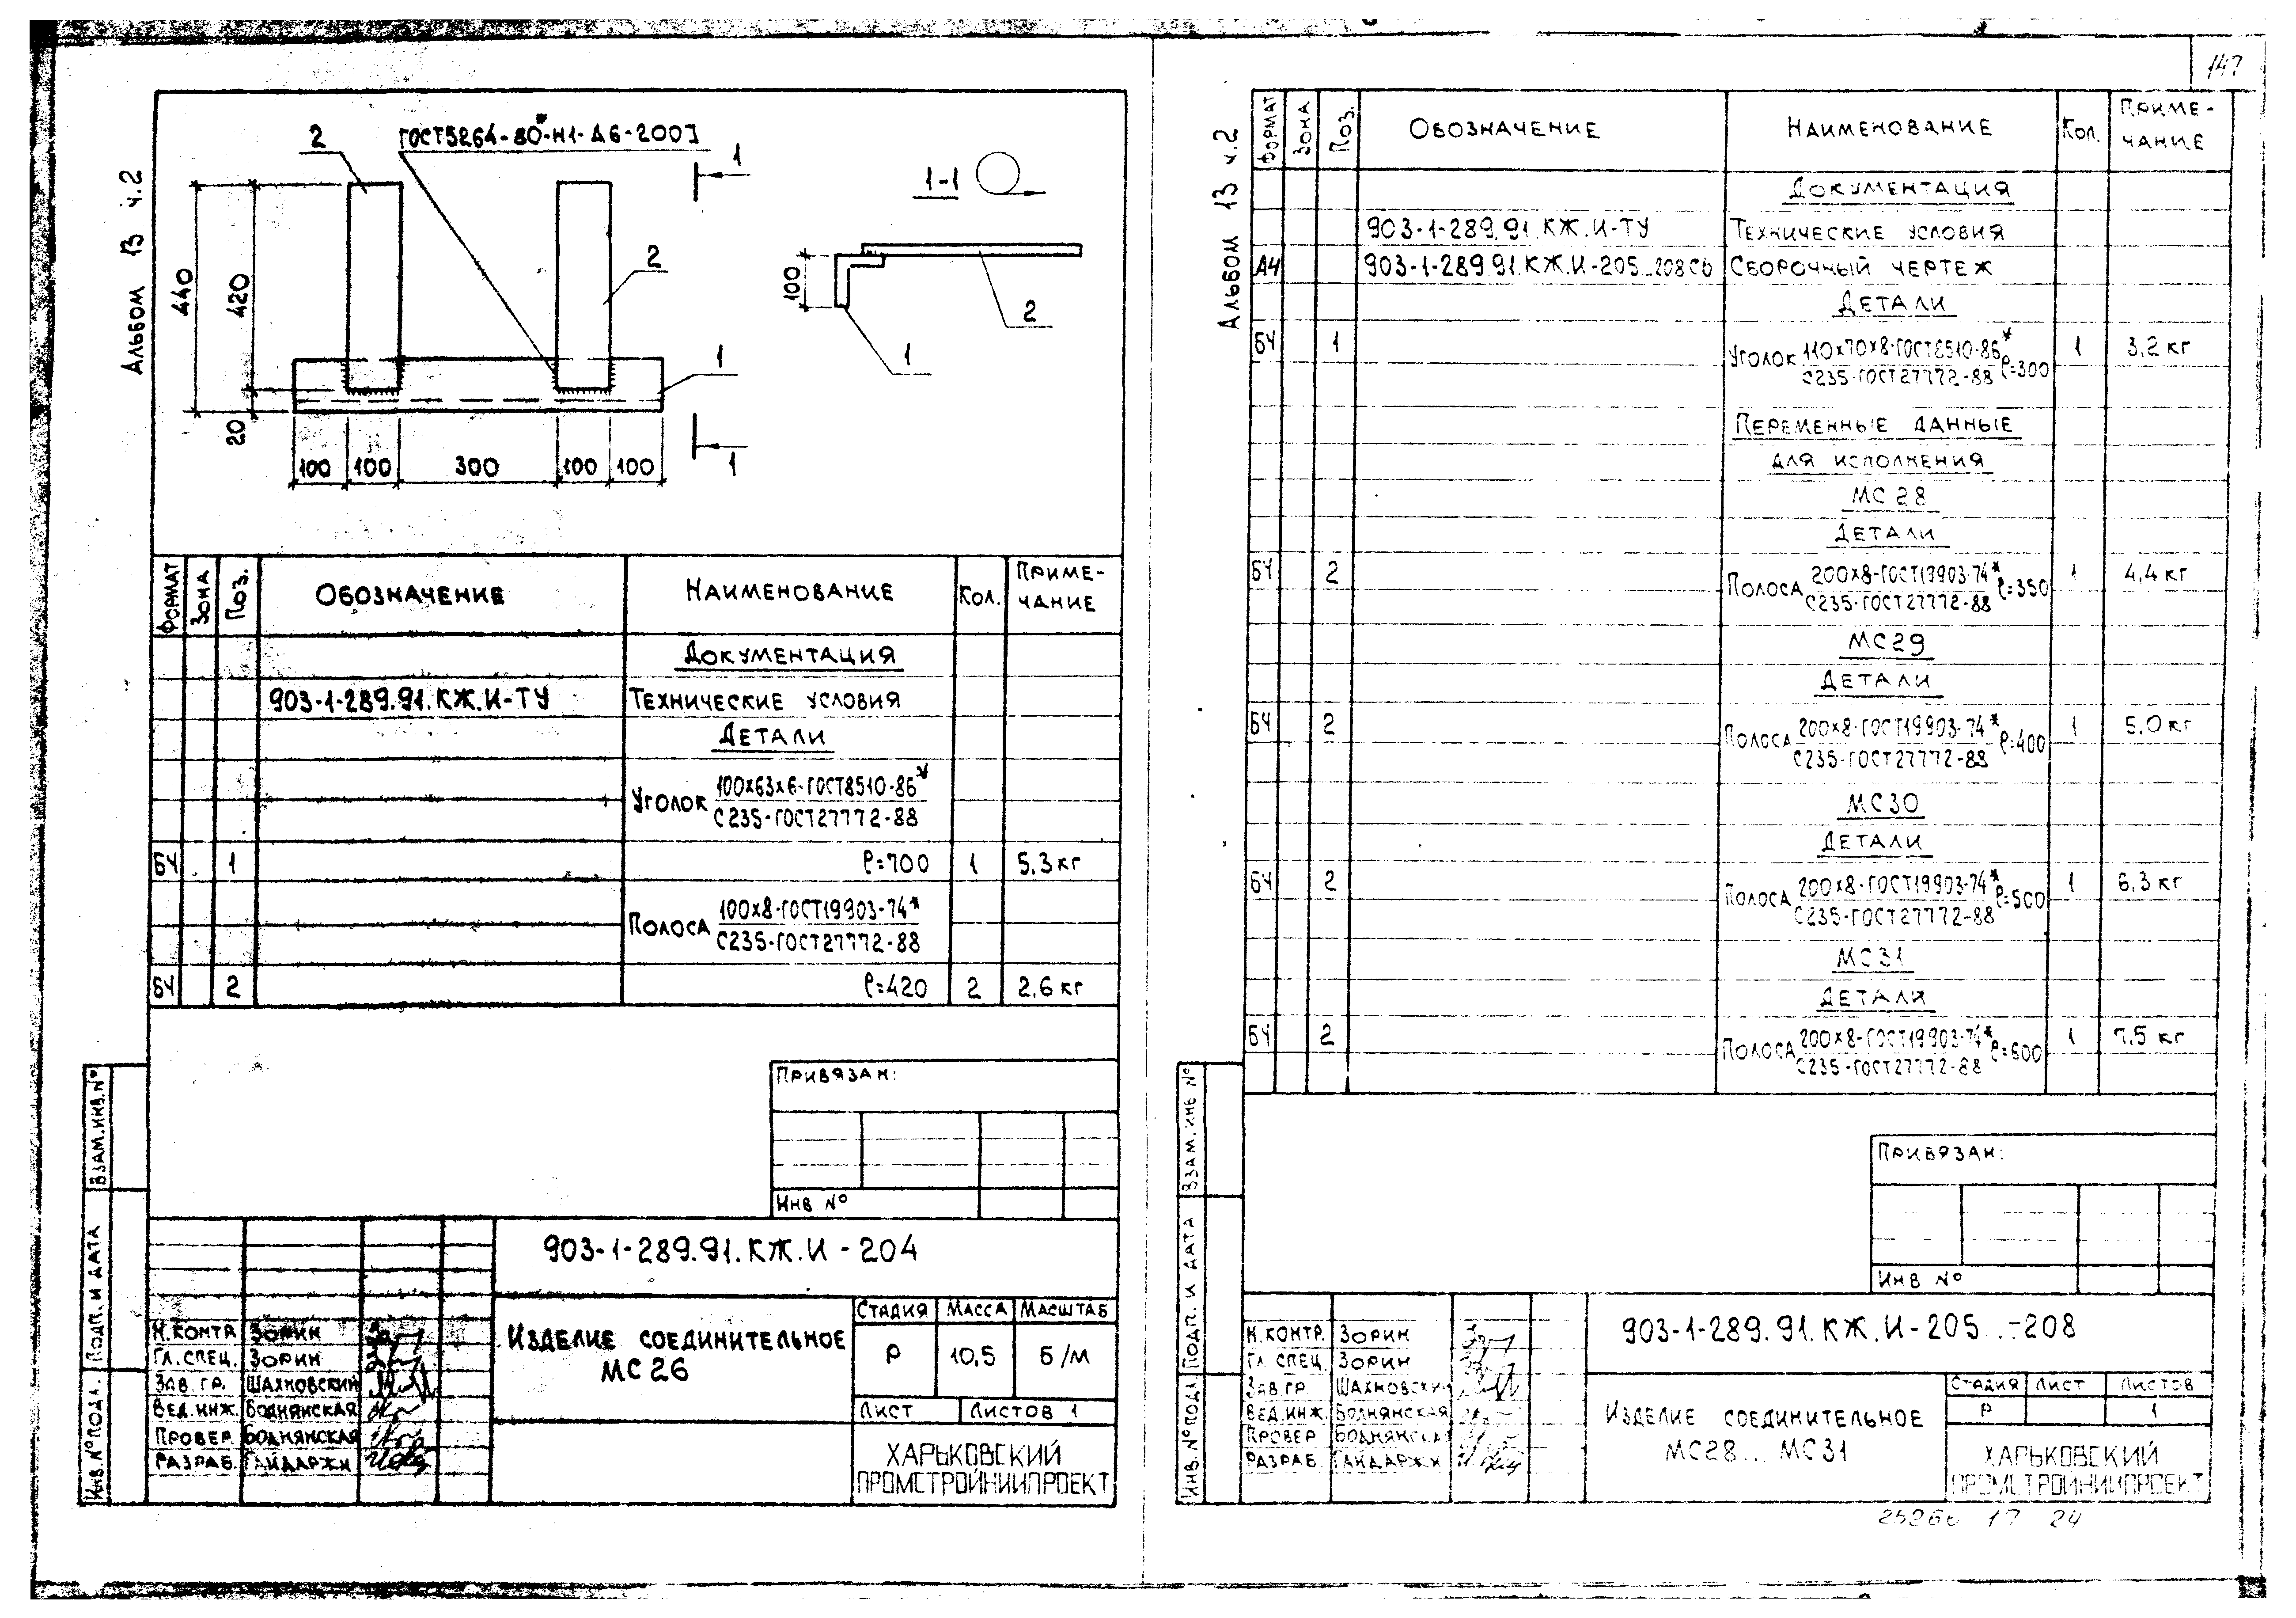 147
Альбом 13 ч.2
2
ГОСТ5264-80*-Н1-Δ6-200]
1
440
420
20
2
1
100 100 300 100 100
1
1-1
100
2
1
Формат Зона Поз. Обозначение Наименование Кол. Примечание
Документация
903-1-289.91.КЖ.И-ТУ Технические условия
Детали
Уголок 100х63х6-ГОСТ8510-86*
С235-ГОСТ27772-88
БЧ 1 ℓ=700 1 5,3 кг
Полоса 100х8-ГОСТ19903-74*
С235-ГОСТ27772-88
БЧ 2 ℓ=420 2 2,6 кг
Привязан:
Инв №
Взам.инв.№
Подп. и дата
Инв.№подл.
903-1-289.91.КЖ.И-204
Н.контр. Зорин
Гл.спец. Зорин
Зав.гр. Шахновский
Вед.инж. Боднянская
Провер. Боднянская
Разраб. Гайдаржи
Изделие соединительное
МС26
Стадия Масса Масштаб
Р 10,5 Б/М
Лист Листов 1
ХАРЬКОВСКИЙ
ПРОМСТРОЙНИИПРОЕКТ
Альбом 13 ч.2
Формат Зона Поз. Обозначение Наименование Кол. Примечание
Документация
903-1-289.91.КЖ.И-ТУ Технические условия
А4 903-1-289.91.КЖ.И-205...208СБ Сборочный чертеж
Детали
БЧ 1 Уголок 110х70х8-ГОСТ8510-86* ℓ=300 1 3,2 кг
С235-ГОСТ27772-88
Переменные данные
для исполнения
МС28
Детали
БЧ 2 Полоса 200х8-ГОСТ19903-74* ℓ=350 1 4,4 кг
С235-ГОСТ27772-88
МС29
Детали
БЧ 2 Полоса 200х8-ГОСТ19903-74* ℓ=400 1 5,0 кг
С235-ГОСТ27772-88
МС30
Детали
БЧ 2 Полоса 200х8-ГОСТ19903-74* ℓ=500 1 6,3 кг
С235-ГОСТ27772-88
МС31
Детали
БЧ 2 Полоса 200х8-ГОСТ19903-74* ℓ=600 1 7,5 кг
С235-ГОСТ27772-88
Привязан:
Инв №
Взам.инв №
Подп. и дата
Инв.№подл
903-1-289.91.КЖ.И-205...-208
Н.контр. Зорин
Гл.спец. Зорин
Зав.гр. Шахновский
Вед.инж. Боднянская
Провер Боднянская
Разраб. Гайдаржи
Изделие соединительное
МС28... МС31
Стадия Лист Листов
Р 1
ХАРЬКОВСКИЙ
ПРОМСТРОЙНИИПРОЕКТ
25266 17 24